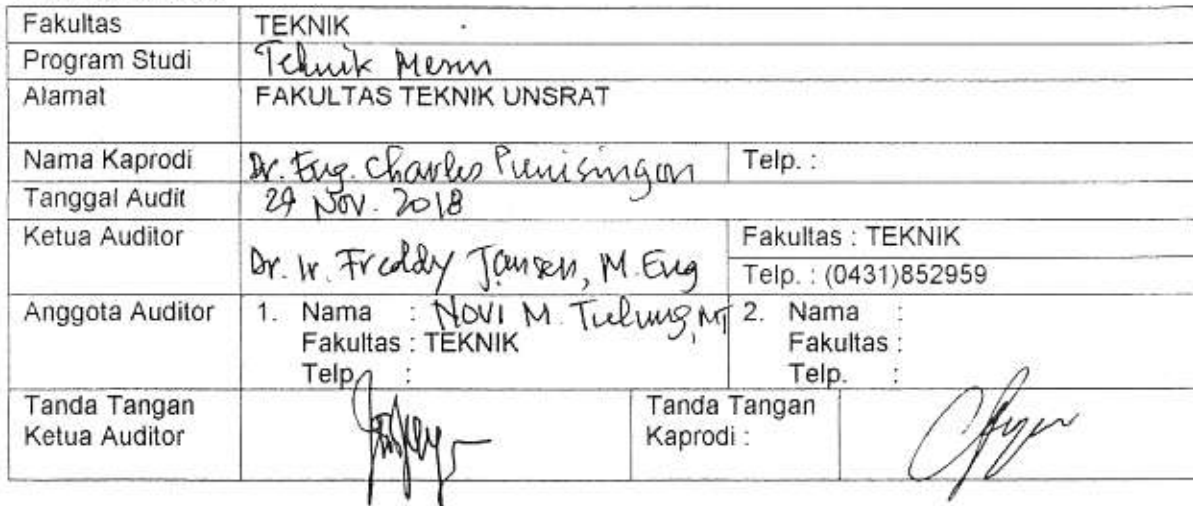 Fakultas TEKNIK
Program Studi Teknik Mesin
Alamat FAKULTAS TEKNIK UNSRAT
Nama Kaprodi Dr. Eng. Charles Punuhsingon Telp. :
Tanggal Audit 29 Nov. 2018
Ketua Auditor Dr. Ir. Freddy Jansen, M. Eng Fakultas : TEKNIK
Telp. : (0431)852959
Anggota Auditor 1. Nama : NOVI M. Tulung, MT 2. Nama :
Fakultas : TEKNIK Fakultas :
Telp. : Telp. :
Tanda Tangan Tanda Tangan
Ketua Auditor Kaprodi :